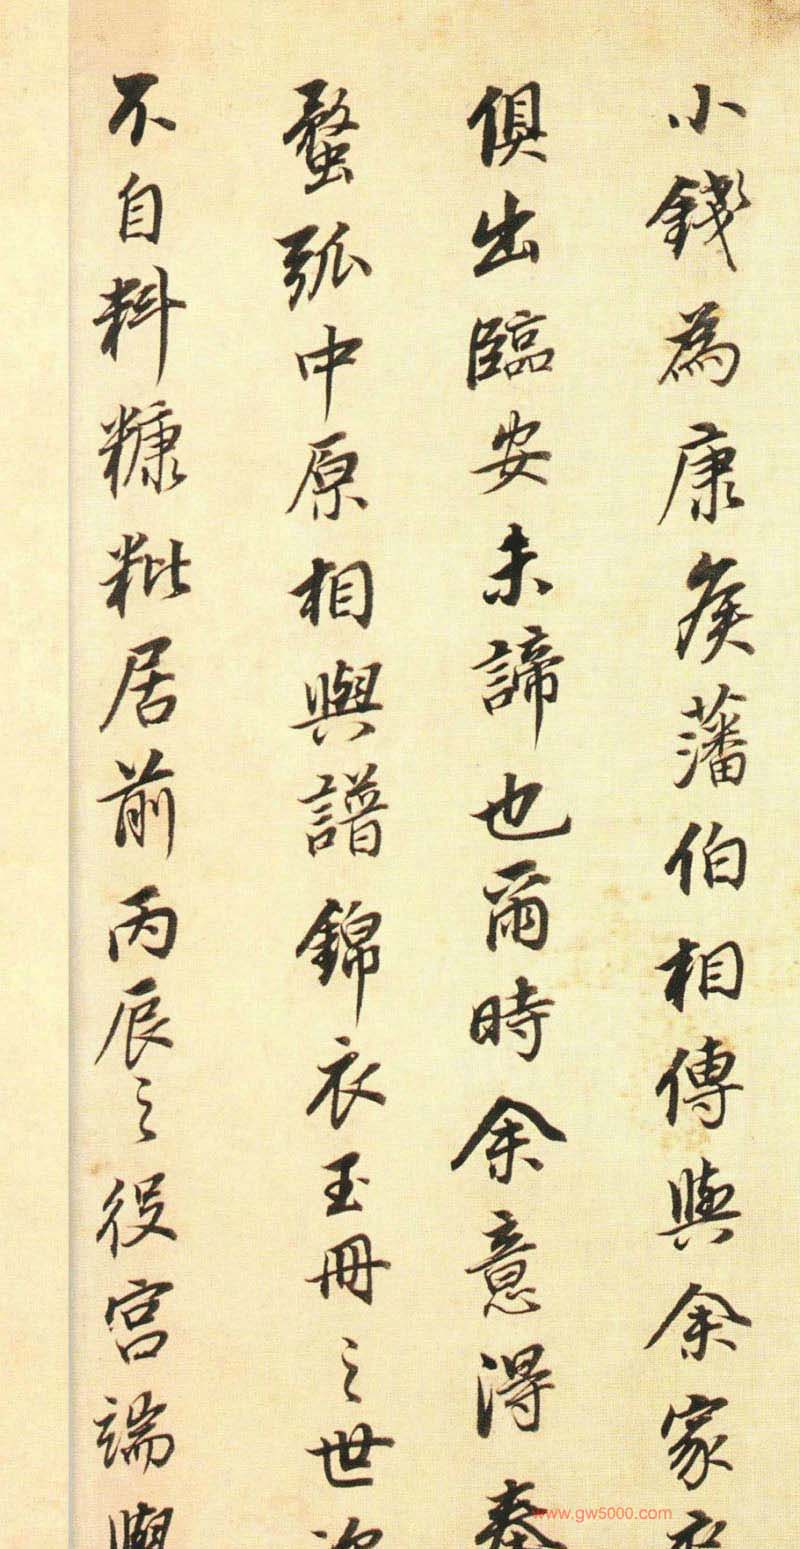 小錢為康侯藩伯相傳與余家
俱出臨安未諦也爾時余意得奏
蝥弧中原相與譜錦衣玉冊之世次
不自料糠粃居前丙辰之役宮端與
www.gw5000.com